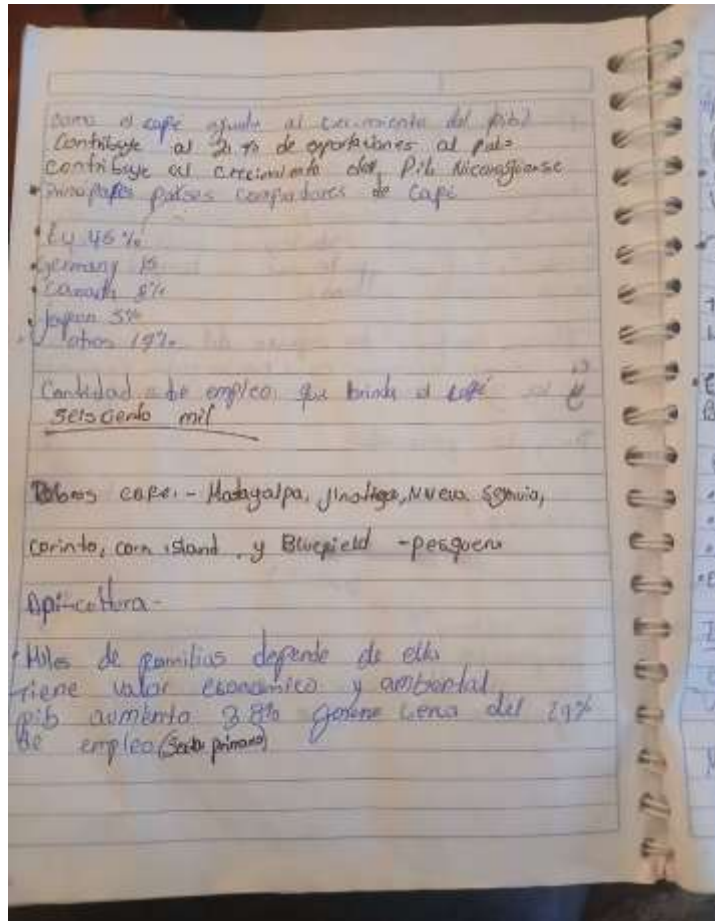 como el café ayuda al crecimiento del pib?
Contribuye al 21 % de exportaciones al país
contribuye al crecimiento del Pib Nicaragüense
• Principales países compradores de café
• EU 46 %
• germany 15
• Canada 8%
• Japon 5%
otros 19%
Cantidad de empleo que brinda el café
seisciento mil
Rubros café. - Matagalpa, Jinotega, Nueva Segovia,
corinto, corn island, y Bluefield - pesquera
Apicultura -
• Miles de familias depende de ella
tiene valor economico y ambiental
pib aumento 3.8% genene cerca del 29%
de empleo (Sector primario)